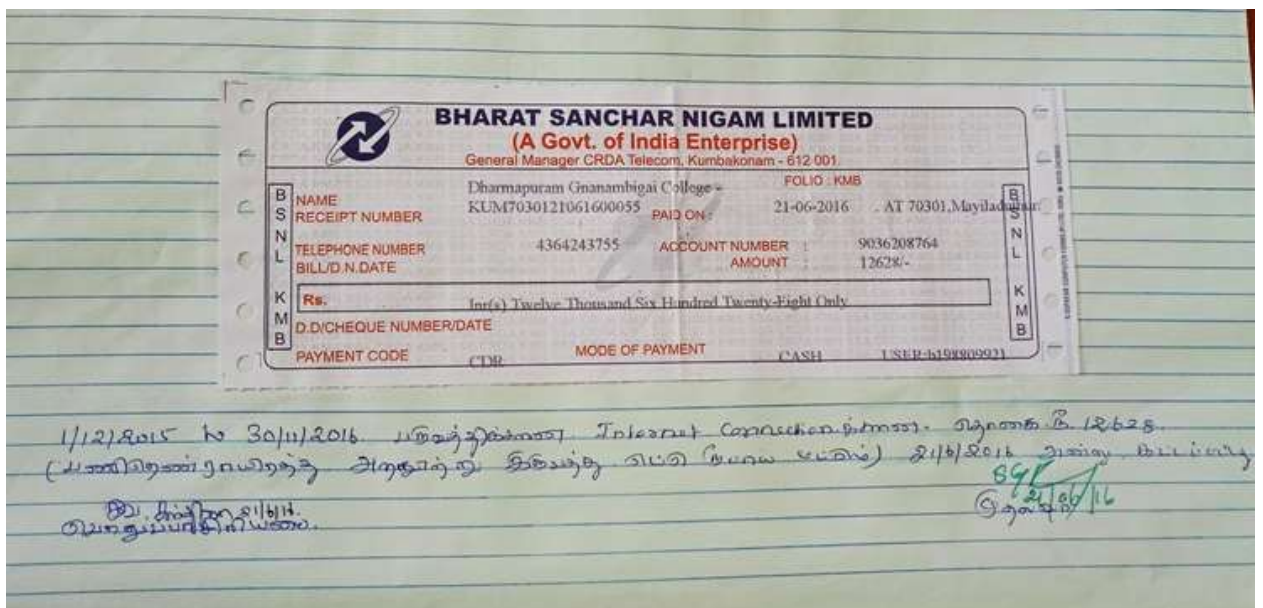 BHARAT SANCHAR NIGAM LIMITED
(A Govt. of India Enterprise)
General Manager CRDA Telecom, Kumbakonam - 612 001.
FOLIO : KMB
BSNL KMB
NAME Dharmapuram Gnanambigai College -
RECEIPT NUMBER KUM7030121061600055 PAID ON : 21-06-2016 . AT 70301,Mayiladuthur
TELEPHONE NUMBER 4364243755 ACCOUNT NUMBER : 9036208764
BILL/D.N.DATE AMOUNT : 12628/-
Rs. Inr(s) Twelve Thousand Six Hundred Twenty-Eight Only
D.D/CHEQUE NUMBER/DATE
PAYMENT CODE CDR MODE OF PAYMENT CASH USER:b198809921
BSNL KMB
1/12/2015 to 30/11/2016 Internet Connection தொகை ரூ. 12628
(பன்னிரெண்டாயிரத்து அறுநூற்று இருபத்து எட்டு ரூபாய் மட்டும்) 21/6/2016 அன்று
21/6/16
21/06/16